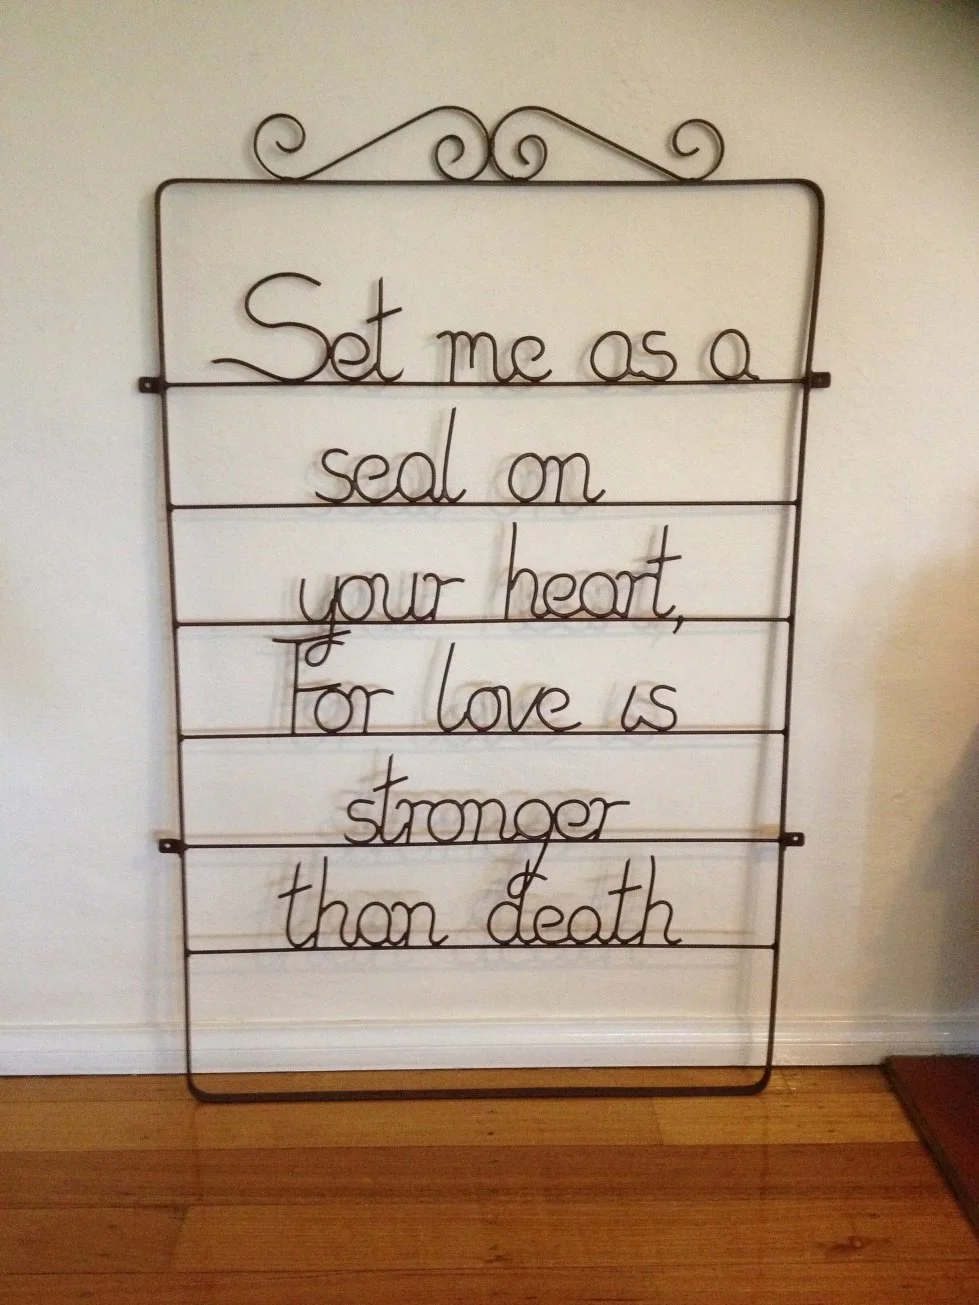 Set me as a
seal on
your heart,
For love is
stronger
than death